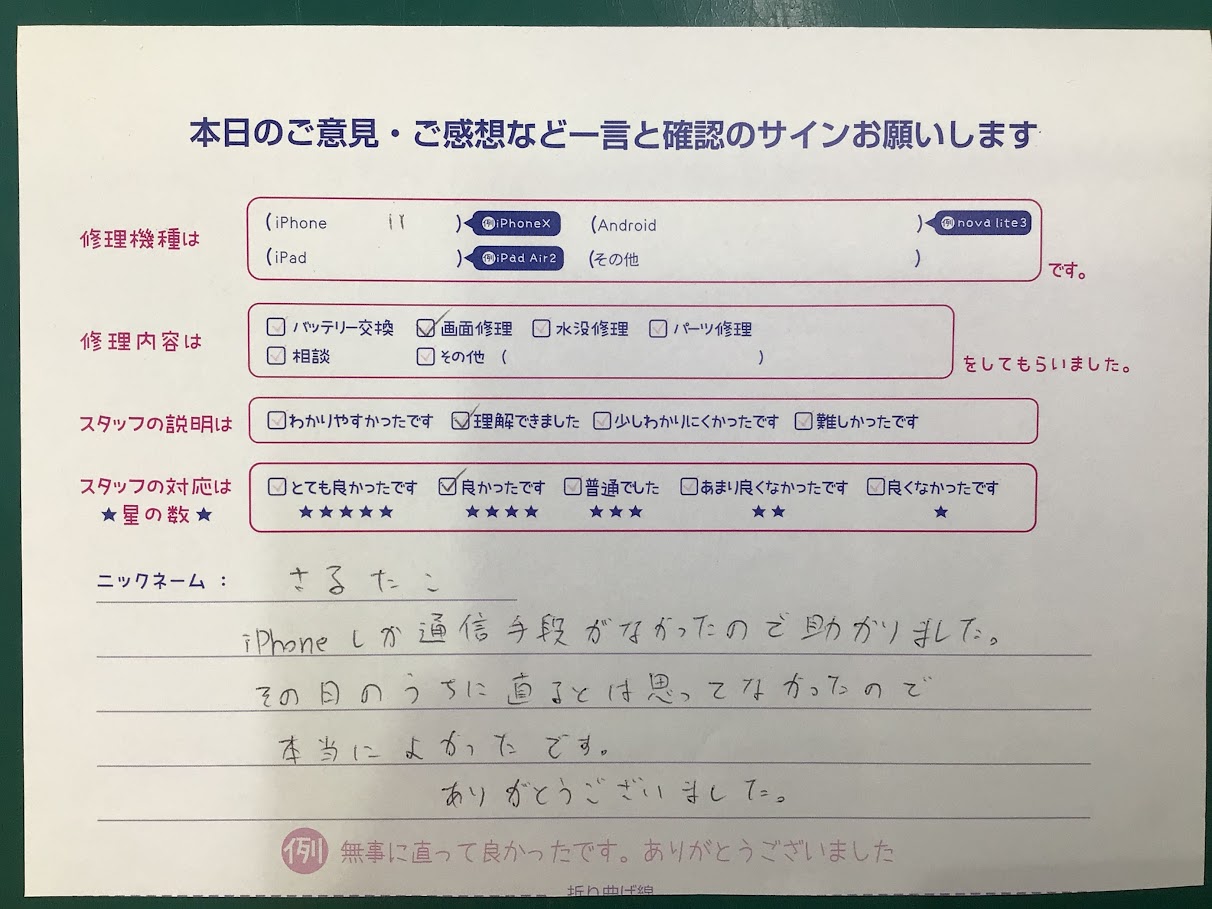 本日のご意見・ご感想など一言と確認のサインお願いします
修理機種は
(iPhone 11 ) 例iPhoneX (Android ) 例nova lite3
(iPad ) 例iPad Air2 (その他 ) です。
修理内容は
バッテリー交換 画面修理 水没修理 パーツ修理
相談 その他 ( ) をしてもらいました。
スタッフの説明は わかりやすかったです 理解できました 少しわかりにくかったです 難しかったです
スタッフの対応は とても良かったです 良かったです 普通でした あまり良くなかったです 良くなかったです
★星の数★ ★★★★★ ★★★★ ★★★ ★★ ★
ニックネーム： さるたこ
iPhoneしか通信手段がなかったので助かりました。
その日のうちに直るとは思ってなかったので
本当によかったです。
ありがとうございました。
例 無事に直って良かったです。ありがとうございました
折り曲げ線